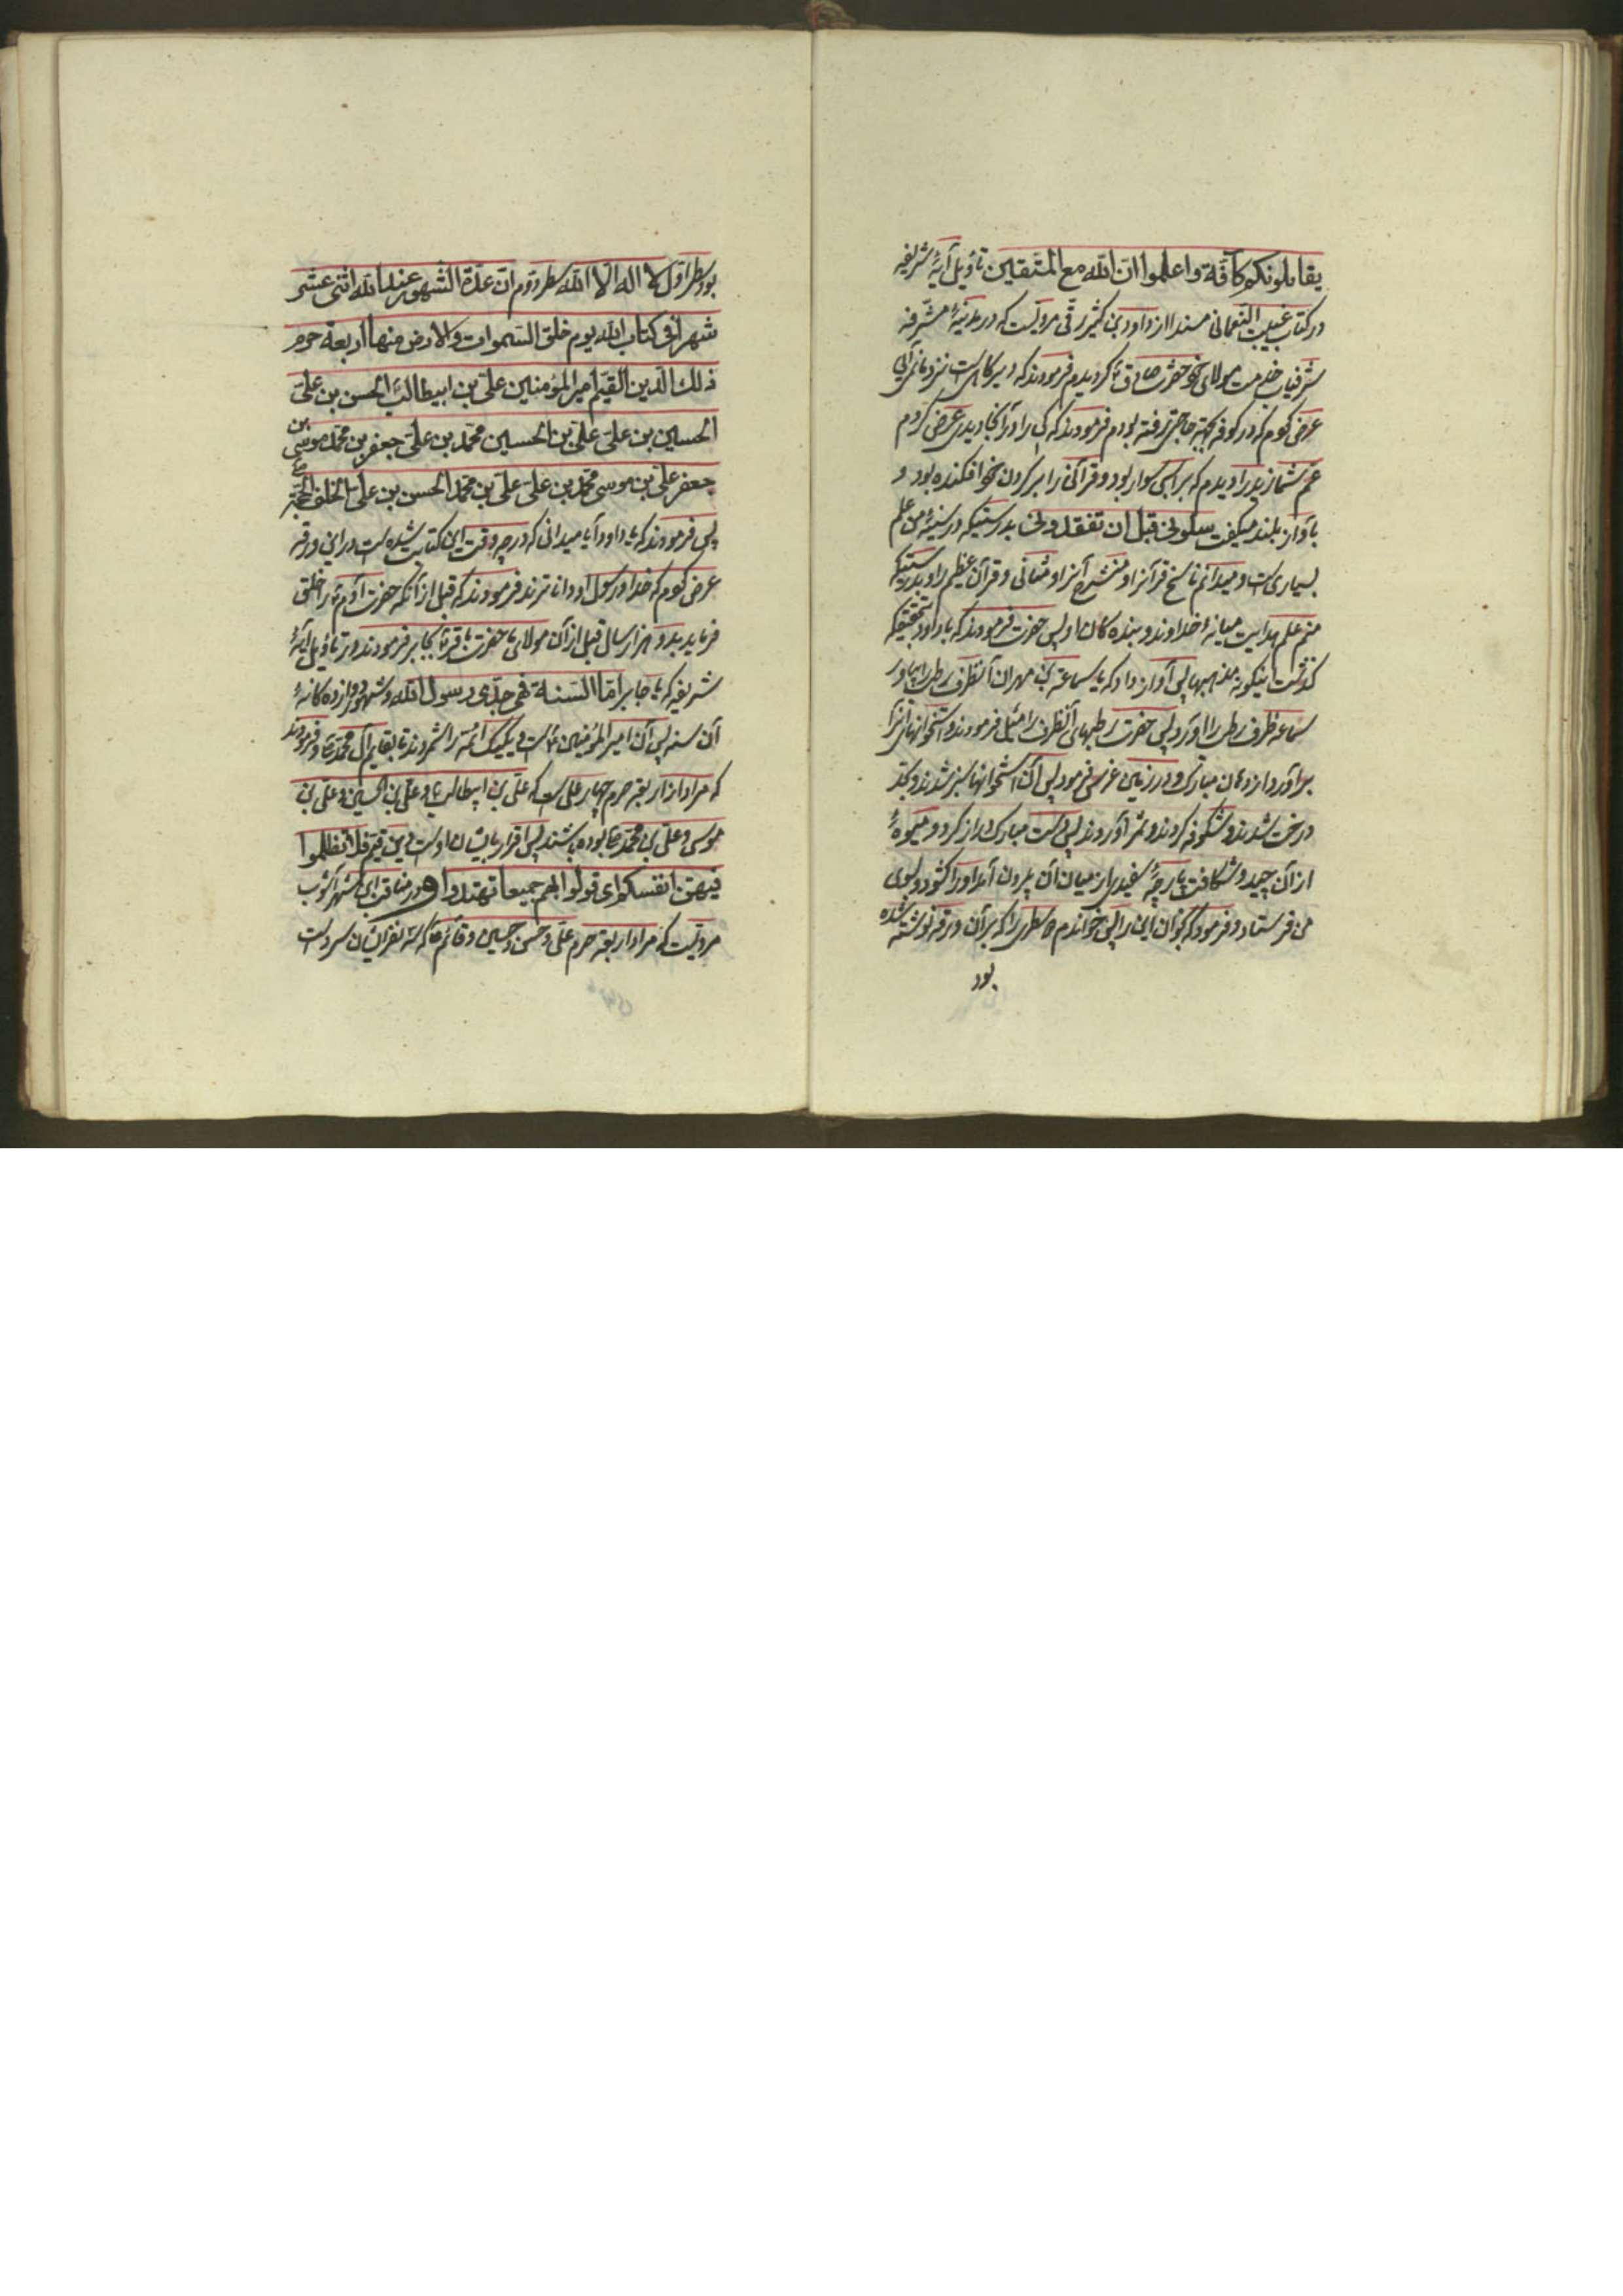 يقاتلونكم كآفّة واعلموا انّ الله مع المتّقين تاويل آيهٔ شريفه
در كتاب غيبت النعمانى مسندا از داود بن كثير رقّى مرويست كه در مدينهٔ مشرفه
شرفياب خدمت مولاى خود حضرت صادق ع كرديدم فرمودند كه دير كاهى است نزد ما نمى‌آيى
عرض كردم كه در كوفه بجهة حاجتى رفته بودم فرمودند كه كى را در آنجا ديدى عرض كردم
عم شما زيد را ديدم كه بر اسبى سوار بود و قرآنى را بر كردن خود افكنده بود و
بآواز بلند ميكفت سلونى قبل ان تفقدونى بدرستيكه در سينهٔ من علم
بسيارى است و ميدانم ناسخ قرآنرا و منسوخ آنرا و مثانى و قرآن عظيم را و بدرستيكه
منم علم هدايت ميانهٔ خداوند و بنده كان او پس حضرت فرمودند كه يا داود بتحقيقكه
كذشت بيكونه مذهبها پس آواز داد كه يا سماعة بن مهران آنظرف رطب را بياور
سماعه ظرف رطب را آورد پس حضرت رطبهاى آنظرف را ميل فرمودند و استخوانهاى آنرا
برآورد از دهان مبارك و در زمين غرس فرمود پس آن استخوانها سبز شدند و
درخت شدند و شكوفه كردند و ثمر آوردند پس دست مبارك دراز كرد و ميوهٔ
از آن چيد و شكافت پارچهٔ سفيدى از ميان آن بيرون آمد او را كشود و بسوى
من فرستاد و فرمود كه بخوان اين را پس خواندم دو سطرى را كه بر آن ورقه نوشته شده
بود
بود سطر اوّل لا اله الّا الله سطر دوّم انّ عدّة الشهور عند الله اثنى عشر
شهرا فى كتاب الله يوم خلق السموات والارض منها اربعة حرم
ذلك الدّين القيّم امير المؤمنين علىّ بن ابيطالب الحسن بن علىّ
الحسين بن علىّ علىّ بن الحسين محمّد بن علىّ جعفر بن محمّد موسى بن
جعفر علىّ بن موسى محمّد بن علىّ علىّ بن محمّد الحسن بن علىّ الخلف الحجّة
پس فرمودند كه يا داود آيا ميدانى كه در چه وقت اين كتابت شده است در اين ورقه
عرض كردم كه خدا و رسول او داناترند فرمودند كه قبل از آنكه حضرت آدم ع را خلق
فرمايد بدو هزار سال قبل از آن مولاى ما حضرت باقر ع بجابر فرمودند در تاويل آيهٔ
شريفه كه يا جابر امّا السّنة فهى جدّى رسول الله و شهور دوازده كانهٔ
آن سنه پس آن امير المؤمنين ع است و يكيك ائمّه را شمردند تا بقايم آل محمّد ع و فرمودند
كه مراد از اربعهٔ حرم چهار على است كه علىّ بن ابيطالب ع و علىّ بن الحسين و علىّ بن
موسى و علىّ بن محمّد ع بوده باشند پس اقرار بايشان اوست دين قيّم فلا تظلموا
فيهنّ انفسكم اى قولوا بهم جميعا تهتدوا و در مناقب ابن شهر آشوب
مرويست كه مراد از اربعهٔ حرم على و حسن و حسين و قائم ع كه سه نفر ايشان سرد است